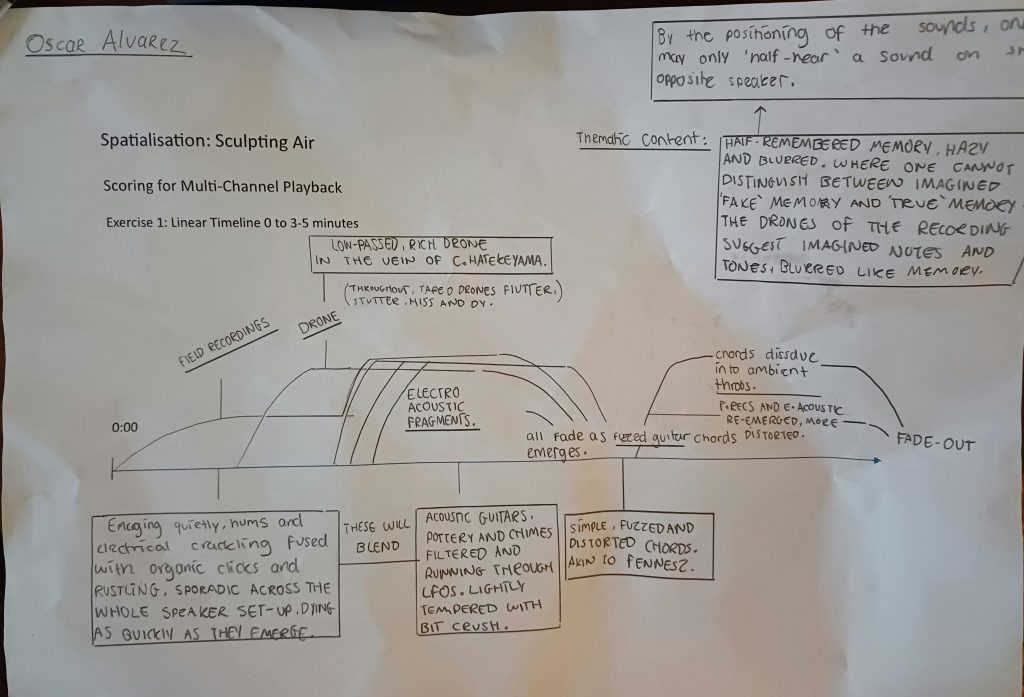 Oscar Alvarez
By the positioning of the sounds, on
may only 'half-hear' a sound on th
opposite speaker.
Spatialisation: Sculpting Air
Scoring for Multi-Channel Playback
Exercise 1: Linear Timeline 0 to 3-5 minutes
Thematic Content:
HALF-REMEMBERED MEMORY, HAZY
AND BLURRED. WHERE ONE CANNOT
DISTINGUISH BETWEEN IMAGINED
'FAKE' MEMORY AND 'TRUE' MEMORY
THE DRONES OF THE RECORDING
SUGGEST IMAGINED NOTES AND
TONES, BLURRED LIKE MEMORY.
LOW-PASSED, RICH DRONE
IN THE VEIN OF C.HATEKEYAMA.
(THROUGHOUT, TAPE DRONES FLUTTER,
STUTTER, HISS AND DY.)
FIELD RECORDINGS
DRONE
0:00
ELECTRO
ACOUSTIC
FRAGMENTS.
all fade as fuzzed guitar chords
emerges.
chords dissolve
into ambient
throbs.
F.RECS AND E.ACOUSTIC
RE-EMERGED, MORE
DISTORTED.
FADE-OUT
Emerging quietly, hums and
electrical crackling fused
with organic clicks and
RUSTLING, SPORADIC ACROSS THE
WHOLE SPEAKER SET-UP, DYING
AS QUICKLY AS THEY EMERGE.
THESE WILL
BLEND
ACOUSTIC GUITARS,
POTTERY AND CHIMES
FILTERED AND
RUNNING THROUGH
LFOS. LIGHTLY
TEMPERED WITH
BIT CRUSH.
SIMPLE, FUZZED AND
DISTORTED CHORDS.
AKIN TO FENNESZ.